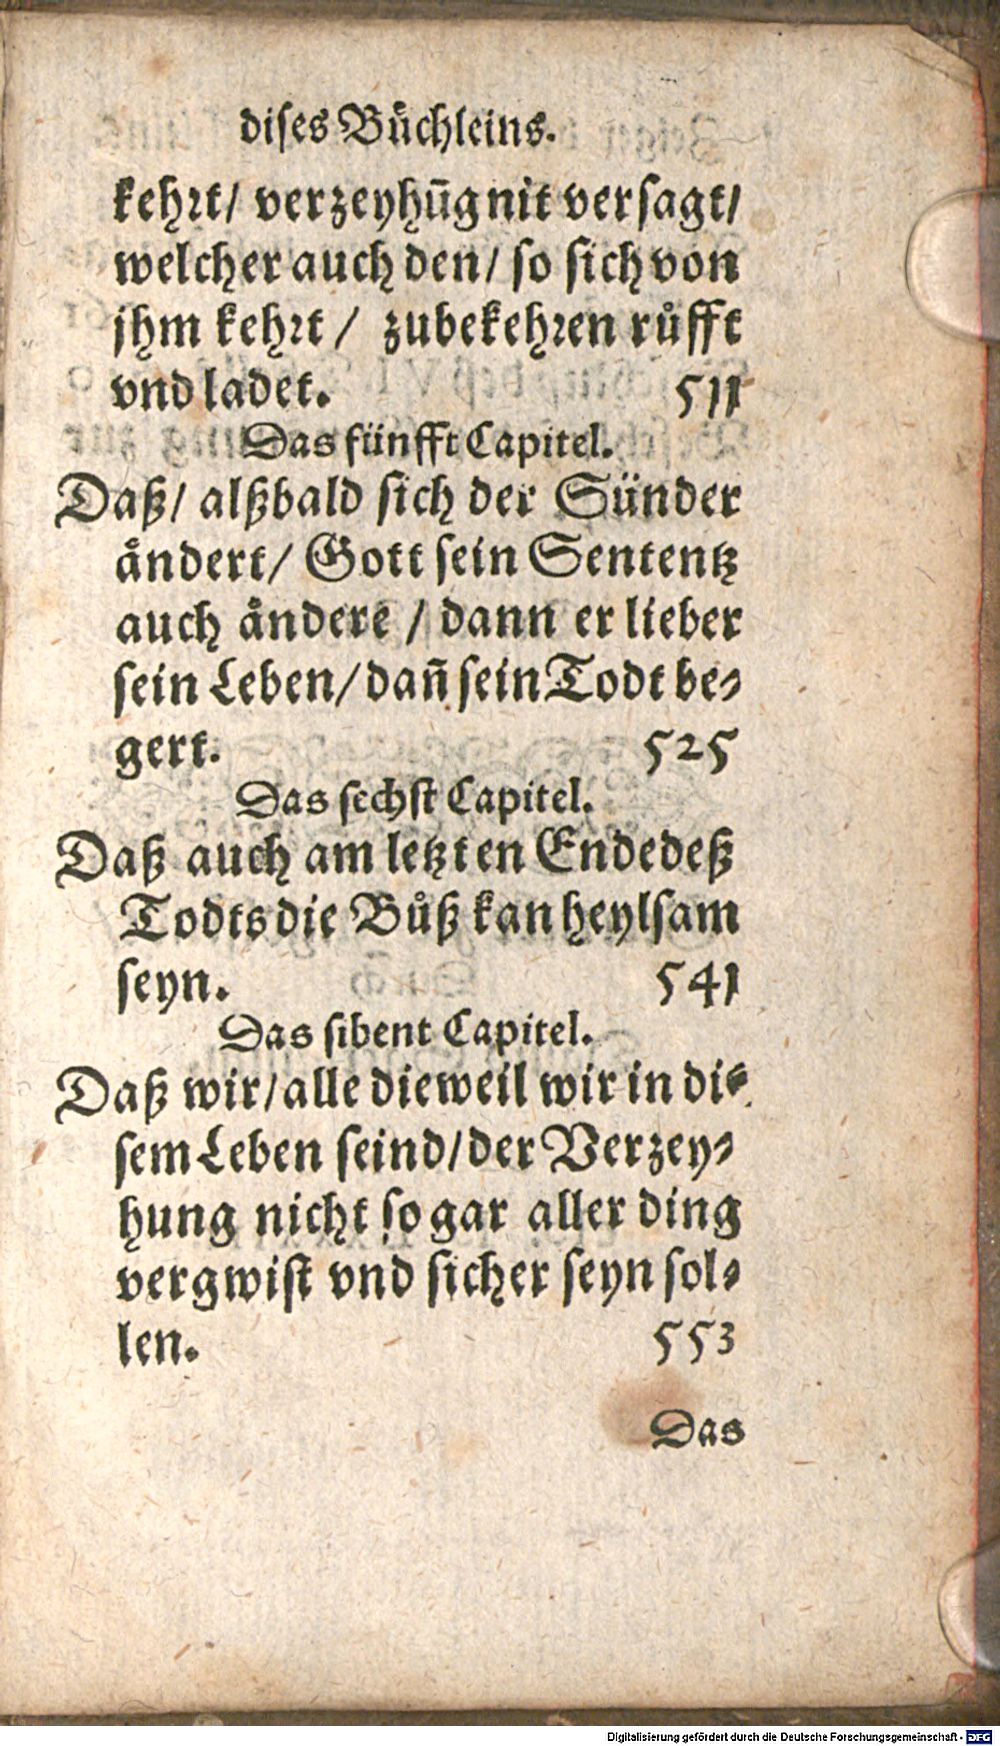 dises Bůchleins.
kehrt/ verzeyhūg nit versagt/
welcher auch den/ so sich von
jhm kehrt / zubekehren růfft
vnd ladet. 511
Das fünfft Capitel.
Daß/ alßbald sich der Sünder
ändert/ Gott sein Sententz
auch ändere / dann er lieber
sein Leben/ dañ sein Todt be-
gert. 525
Das sechst Capitel.
Daß auch am letzten Ende deß
Todts die Bůß kan heylsam
seyn. 541
Das sibent Capitel.
Daß wir/ alle dieweil wir in di-
sem Leben seind/ der Verzey-
hung nicht so gar aller ding
vergwist vnd sicher seyn sol-
len. 553
Das
Digitalisierung gefördert durch die Deutsche Forschungsgemeinschaft - DFG